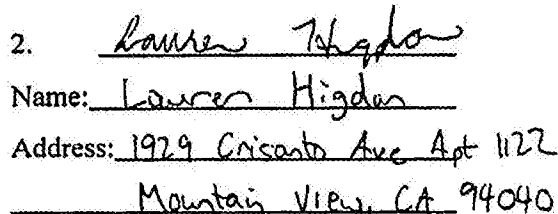 2. Lauren Higdon
Name: Lauren Higdon
Address: 1929 Crisanto Ave Apt 1122
Mountain View, CA 94040